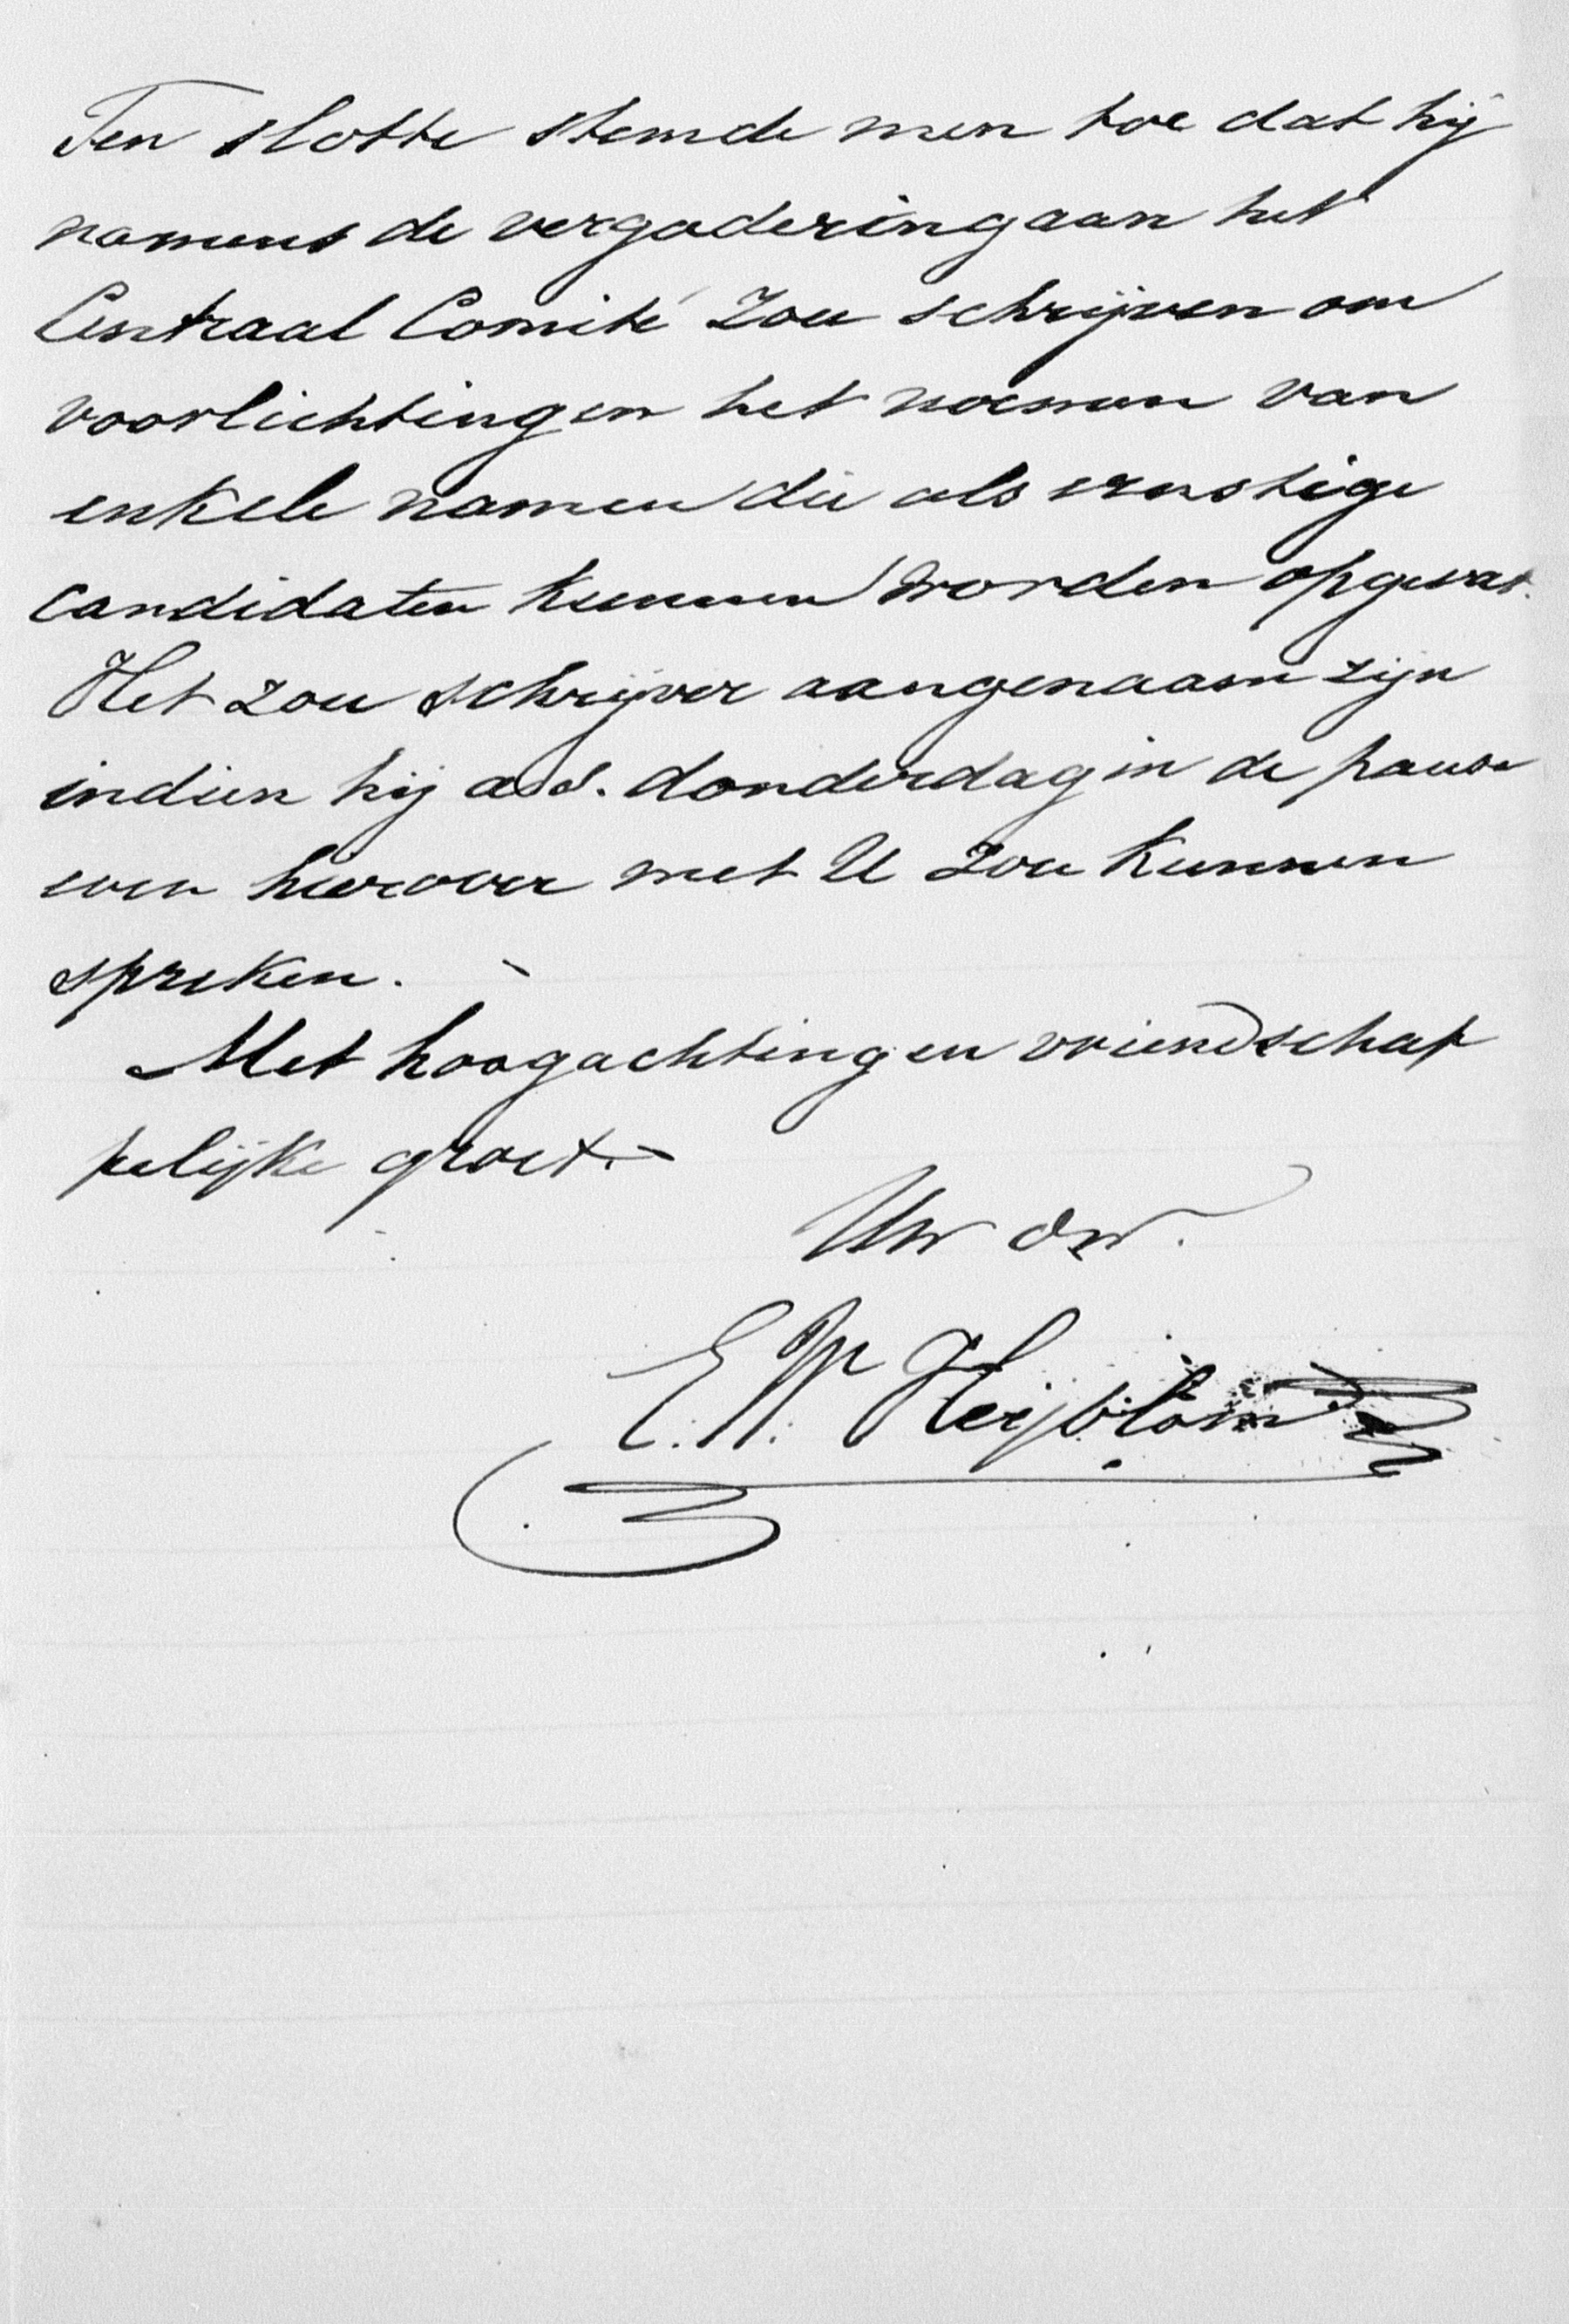 Ten slotte stemde men toe dat hij
namens de vergadering aan het
Centraal Comité zou schrijven om
voorlichting en het noemen van
enkele namen die als ernstige
candidaten kunnen worden opgevat.
Het zou schrijver aangenaam zijn
indien hij a.s. donderdag in de pauze
even hierover met U zou kunnen
spreken.
Met hoogachting en vriendschap
pelijke groet.
Uw dw.
E. W. Heijblom